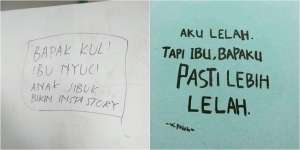 BAPAK KULI
IBU NYUCI
ANAK SIBUK
BIKIN INSTASTORY
AKU LELAH.
TAPI IBU, BAPAKU
PASTI LEBIH
LELAH.